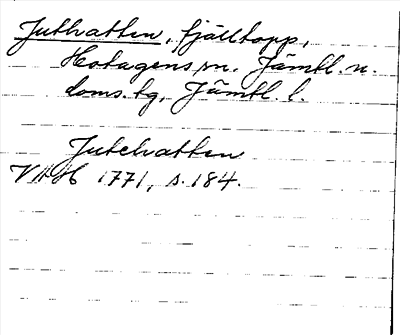 Juthatten, fjälltopp,
Hotagens sn. Jämtl. n.
doms. tg, Jämtl. l.
Jutehatten
VHAH 1771, s. 184.